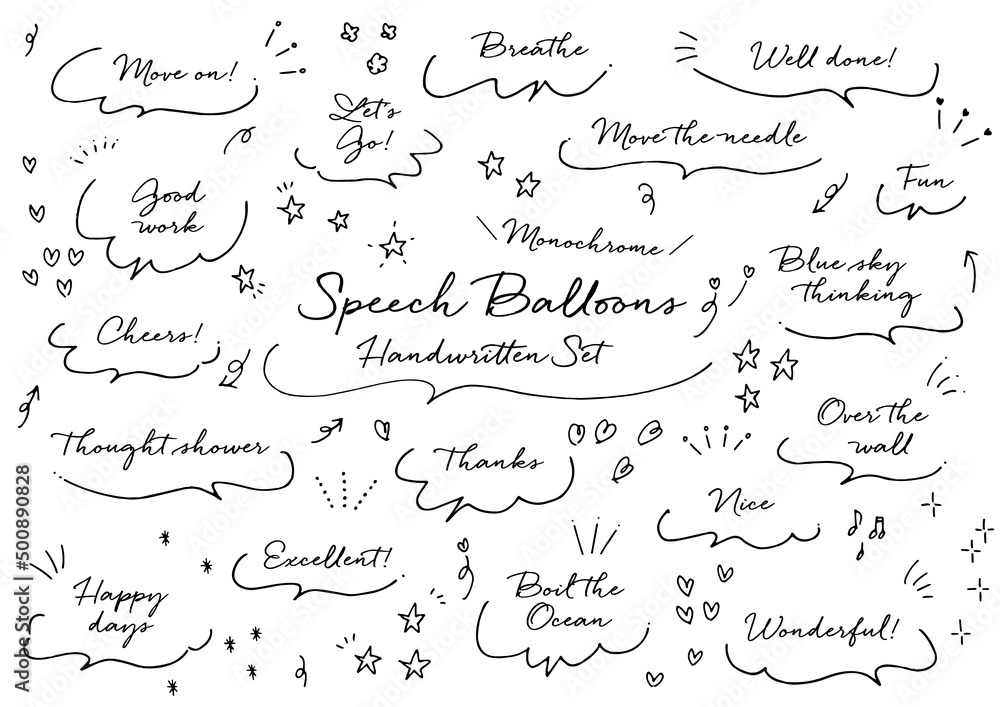 Move on!
Breathe
Well done!
Let's
Go!
Move the needle
Good
work
Fun
Monochrome
Blue sky
thinking
Speech Balloons
Handwritten Set
Cheers!
Over the
wall
Thought shower
Thanks
Nice
Excellent!
Happy
days
Boil the
Ocean
Wonderful!
Adobe Stock | #500890828